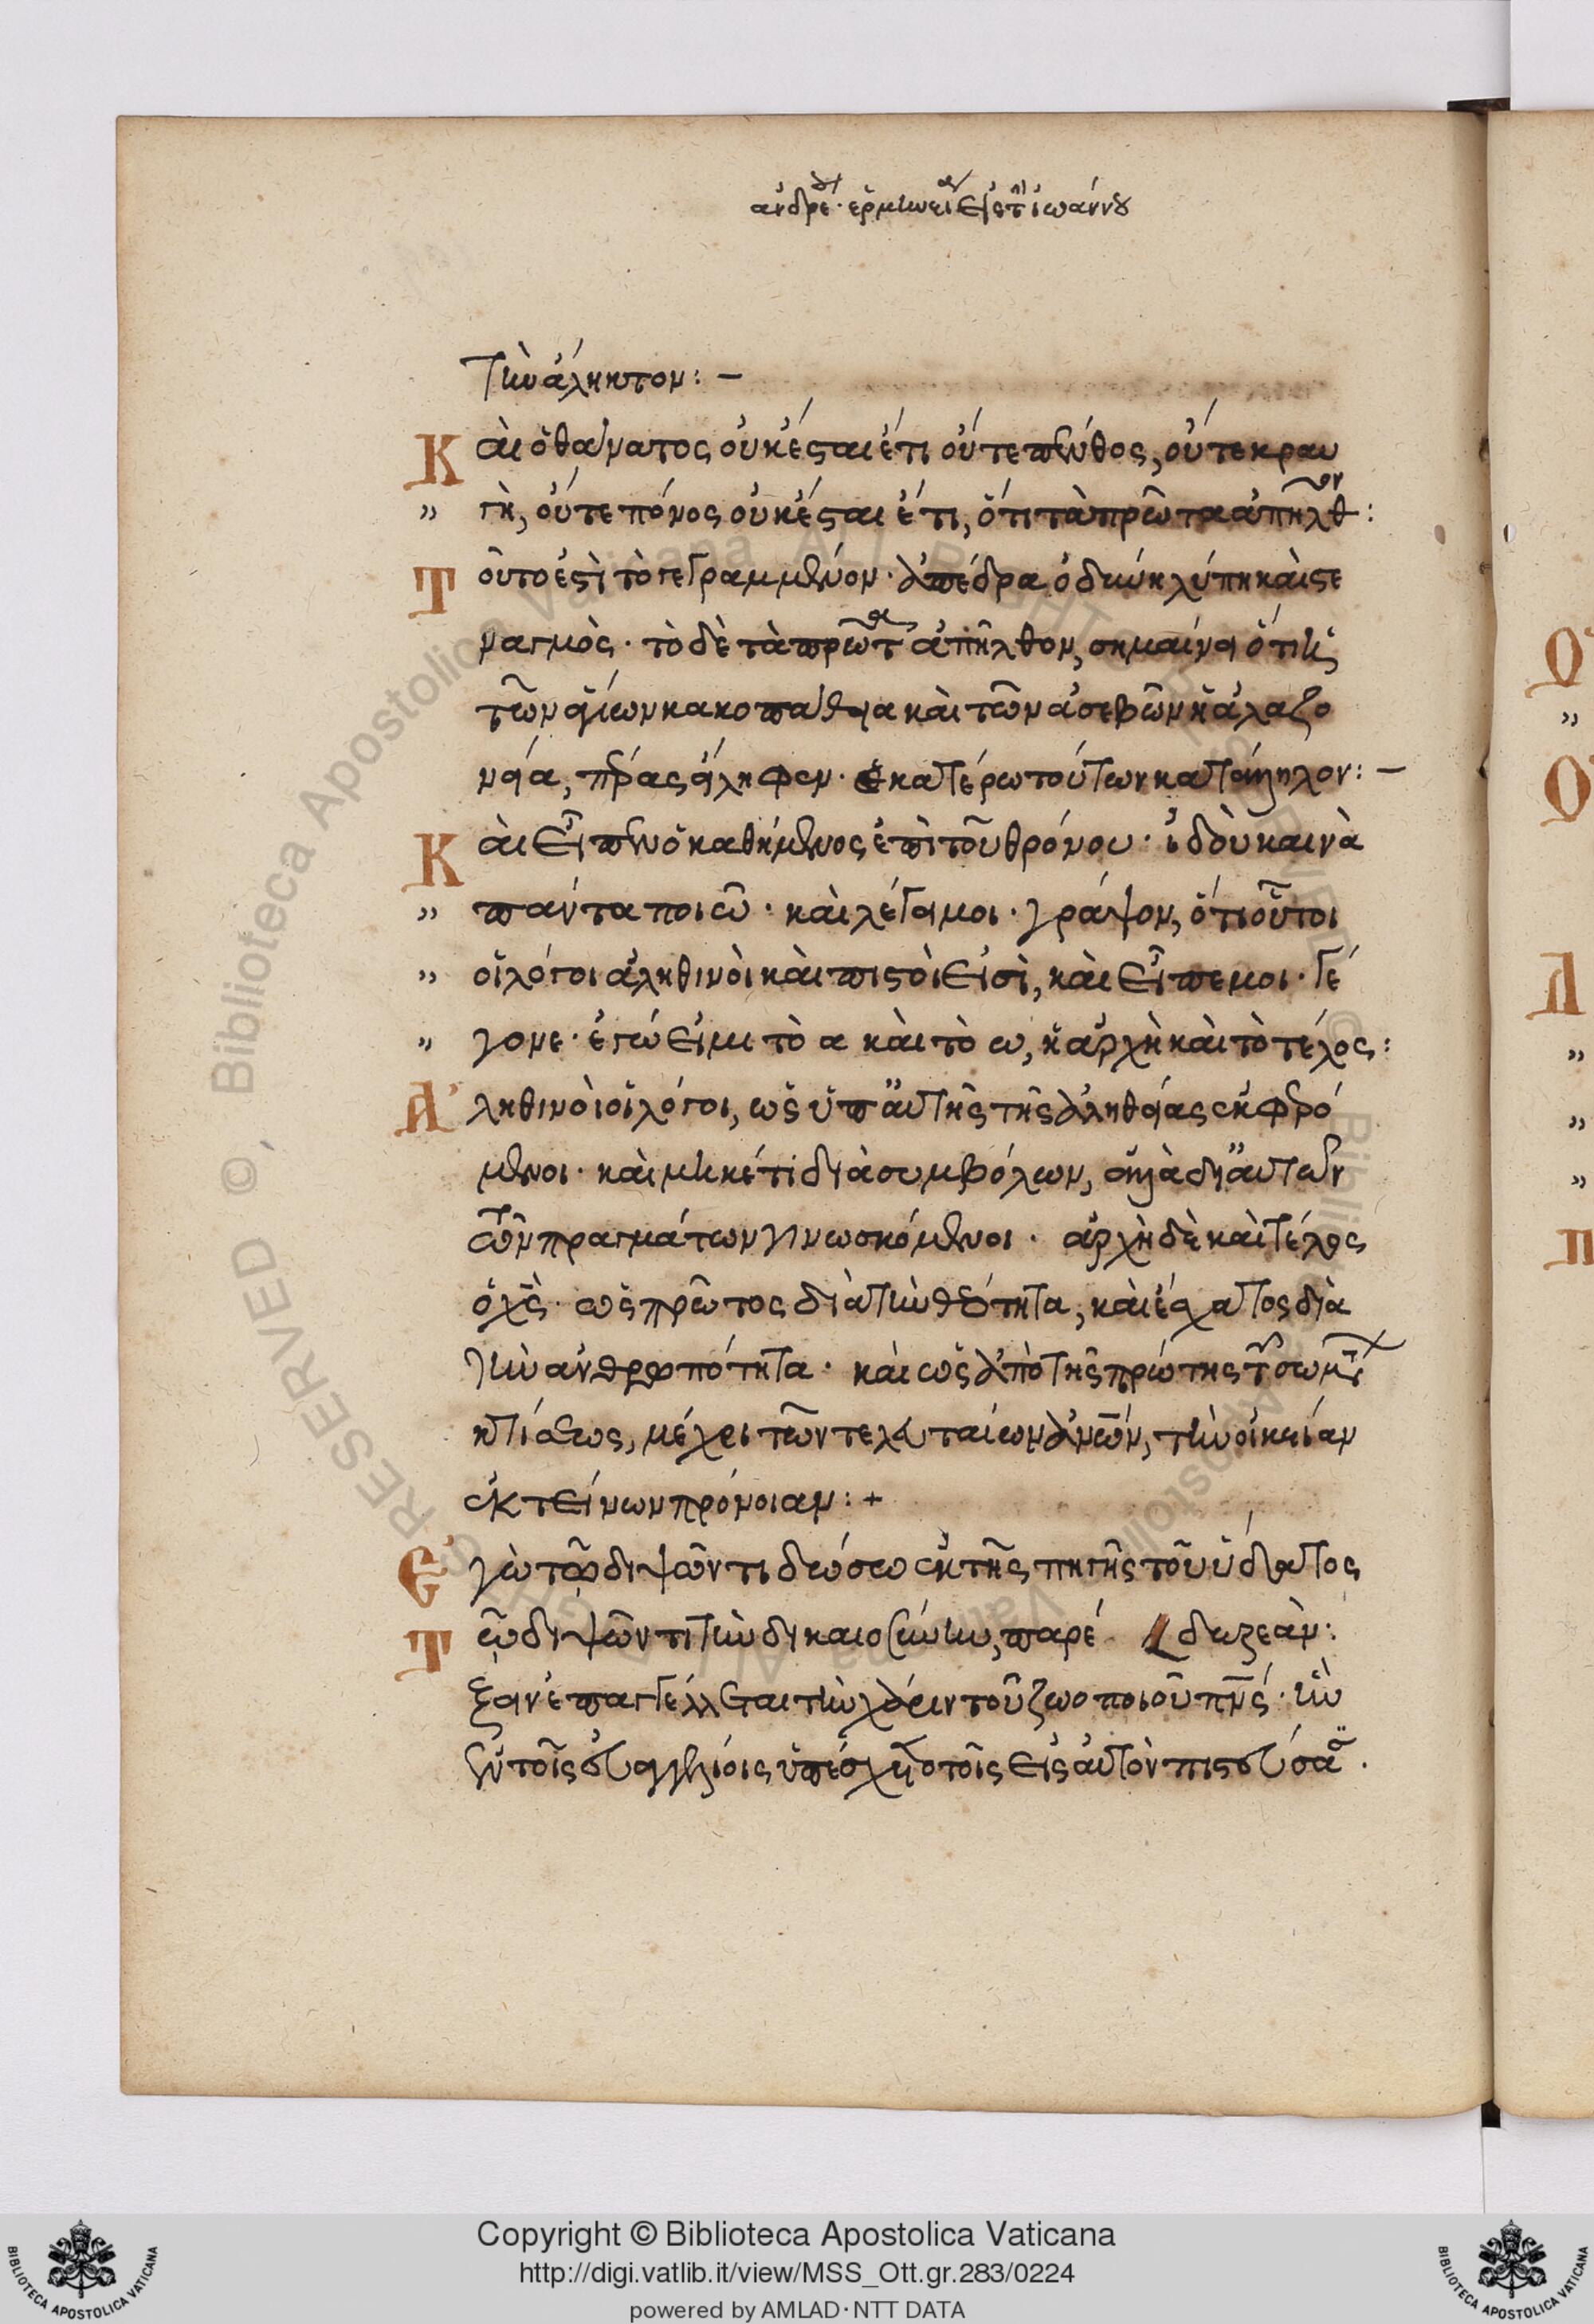 ἀνδρέ· ἑρμηνεία εἰς τ ἰωάννου
τὴν ἄληκτον: —
Κ αὶ ὁ θάνατος οὐκ ἔσται ἔτι οὔτε πένθος, οὔτε κραυ
» γὴ, οὔτε πόνος οὐκ ἔσται ἔτι, ὅτι τὰ πρῶτα ἀπῆλθον:
Τ οῦτο ἐστὶ τὸ γεγραμμένον· ἀπέδρα ὀδύνη λύπη καὶ στε
ναγμὸς· τὸ δὲ τὰ πρῶτα ἀπῆλθον, σημαίνει ὅτι ἡ
τῶν ἁγίων κακοπάθεια καὶ τῶν ἀσεβῶν ἡ ἀλαζο
νεία, πέρας εἴληφεν· ἑκατέρω τούτων κατάλληλον: —
Κ αὶ εἶπεν ὁ καθήμενος ἐπὶ τοῦ θρόνου· ἰδοὺ καινὰ
» πάντα ποιῶ· καὶ λέγει μοι· γράψον, ὅτι οὗτοι
» οἱ λόγοι ἀληθινοὶ καὶ πιστοὶ εἰσὶ, καὶ εἶπε μοι· γέ
» γονε· ἐγώ εἰμι τὸ α καὶ τὸ ω, ἡ ἀρχὴ καὶ τὸ τέλος:
Ἀ ληθινοὶ οἱ λόγοι, ὡς ὑπ αὐτῆς τῆς ἀληθείας ἐκφερό
μενοι· καὶ μηκέτι διὰ συμβόλων, ἀλλὰ δι αὐτῶν
τῶν πραγμάτων γινωσκόμενοι· ἀρχὴ δὲ καὶ τέλος
ὁ χς· ὡς πρῶτος διὰ τὴν θεότητα, καὶ ἔσχατος διὰ
τὴν ἀνθρωπότητα· καὶ ὡς ἀπὸ τῆς πρώτης τῶν ἀσωμάτων
κτίσεως, μέχρι τῶν τελευταίων ἀνῶν, τὴν οἰκείαν
ἐκτείνων πρόνοιαν: +
Ἐ γὼ τῷ διψῶντι δώσω ἐκ τῆς πηγῆς τοῦ ὕδατος
Τ ῷ διψῶντι τὴν δικαιοσύνην, παρέ δωρεὰν:
ξειν ἐπαγγέλλεται τὴν χάριν τοῦ ζωοποιοῦ πνς· ἣν
ἐν τοῖς εὐαγγελίοις ὑπέσχετο τοῖς εἰς αὐτὸν πιστεύσασι.
Copyright © Biblioteca Apostolica Vaticana
http://digi.vatlib.it/view/MSS_Ott.gr.283/0224
powered by AMLAD · NTT DATA